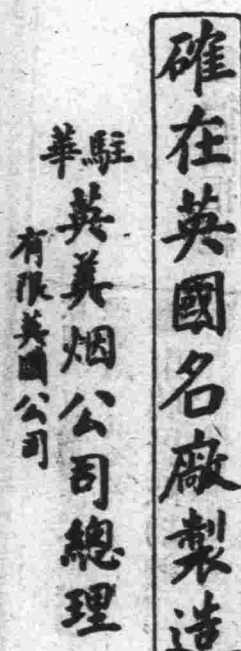 確在英國名廠製造
駐華英美烟公司總理
有限英國公司